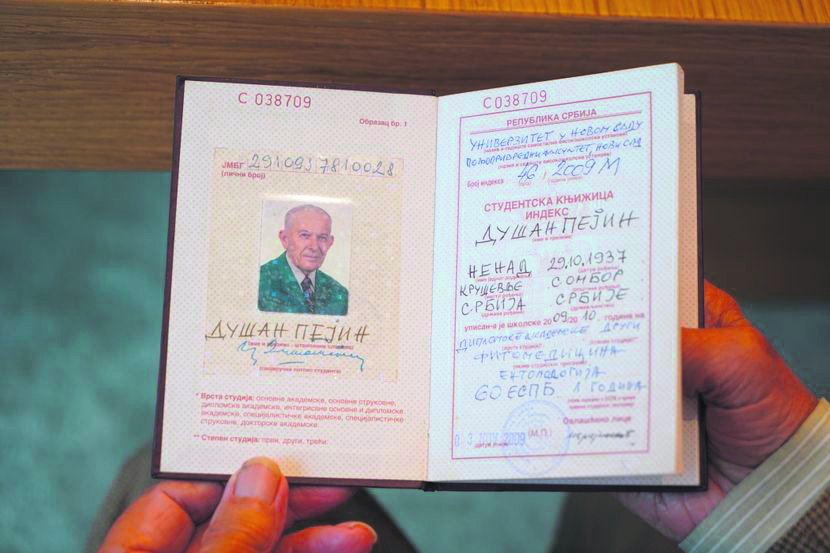 С 038709
Образац бр. 1
ЈМБГ 2910937810028
(лични број)
ДУШАН ПЕЈИН
(име и презиме - штампаним словима)
(својеручни потпис студента)
* Врста студија: основне академске, основне струковне,
дипломске академске, интегрисане основне и дипломске
академске, специјалистичке академске, специјалистичке
струковне, докторске академске.
** Степен студија: први, други, трећи.
С 038709
РЕПУБЛИКА СРБИЈА
УНИВЕРЗИТЕТ У НОВОМ САДУ
(назив и седиште самосталне високошколске установе)
ПОЉОПРИВРЕДНИ ФАКУЛТЕТ, НОВИ САД
(назив и седиште високошколске установе)
Број индекса 46 / 2009 М
(број) (година уписа)
СТУДЕНТСКА КЊИЖИЦА
ИНДЕКС
ДУШАН ПЕЈИН
(име и презиме)
НЕНАД 29.10.1937
(име једног родитеља) (датум рођења)
КРУШЕВЉЕ СОМБОР
(место рођења) (општина рођења)
СРБИЈА СРБИЈЕ
(држава рођења)
уписан-а је школске 2009/2010. године на
ДИПЛОМСКЕ АКАДЕМСКЕ ДРУГИ
(врста студија)* (степен студија)**
ФИТОМЕДИЦИНА
60 ЕСПБ 1 ГОДИНА
03 ЈУЛИ 2009 (М.П.)
Овлашћено лице
(датум уписа)